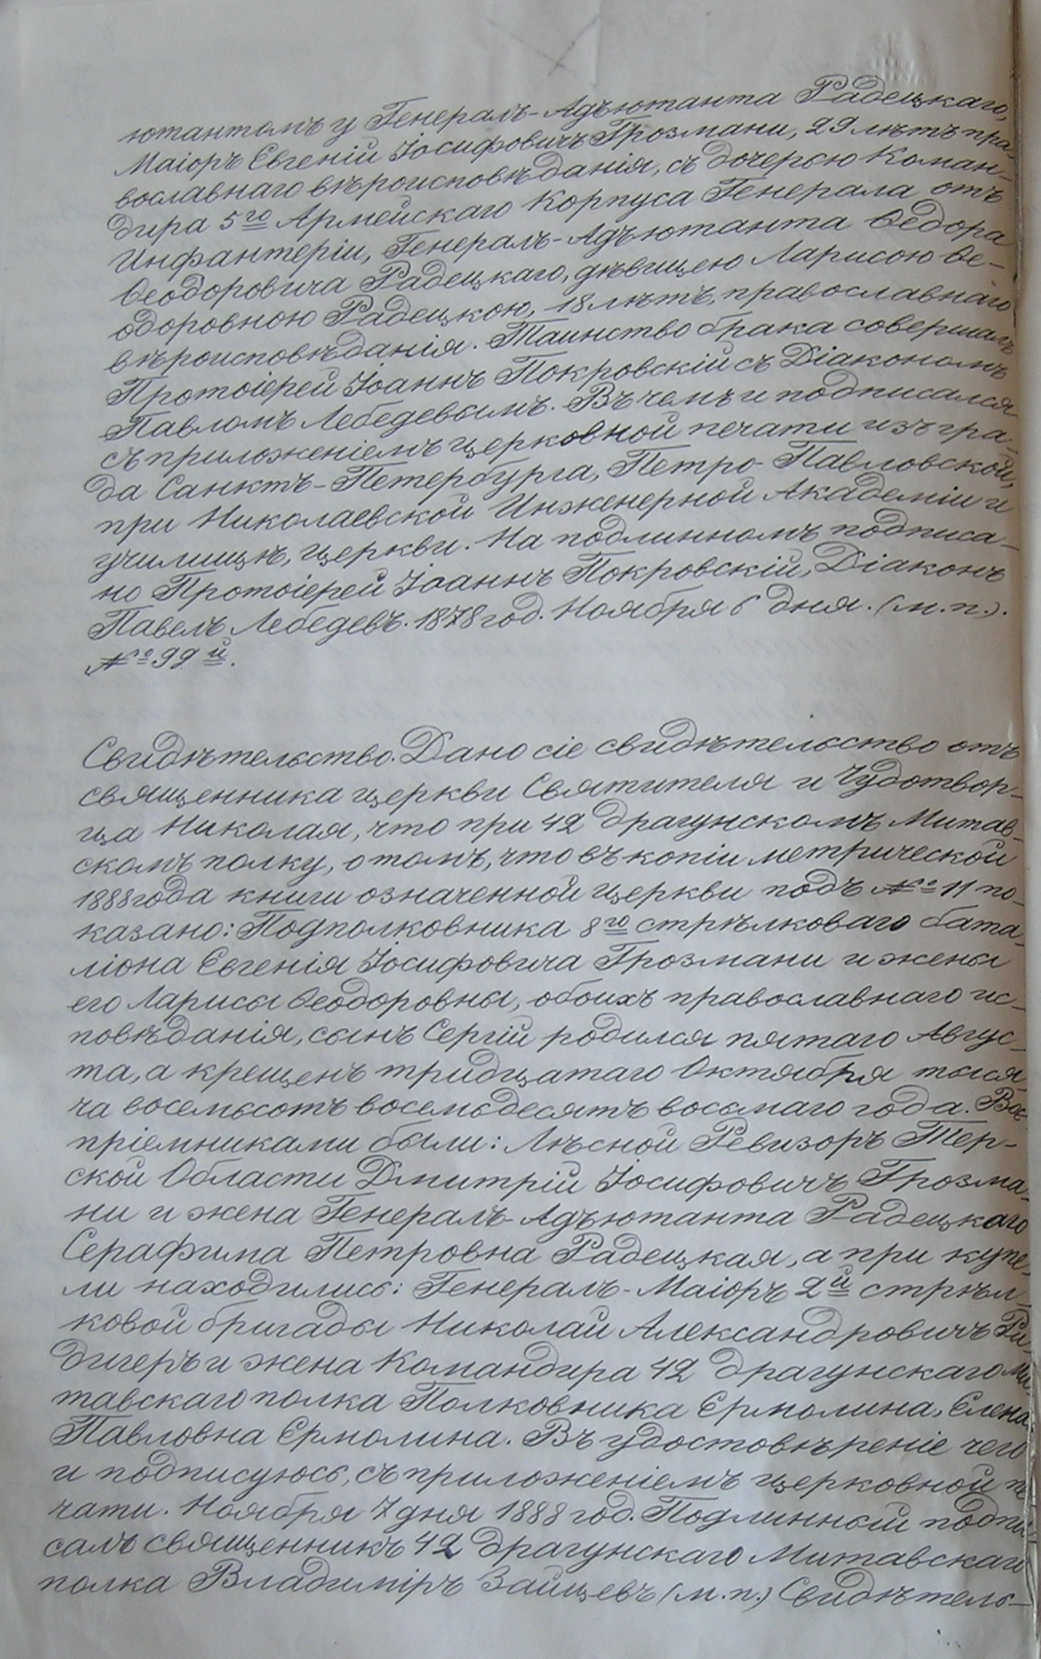 ютантомъ у Генералъ-Адъютанта Радецкаго,
Маіоръ Евгеній Іосифовичъ Грозмани, 29 лѣтъ пра-
вославнаго вѣроисповѣданія, съ дочерью Коман-
дира 5го Армейскаго Корпуса Генерала отъ
Инфантеріи, Генералъ-Адъютанта Ѳедора
Ѳеодоровича Радецкаго, дѣвицею Ларисою Ѳе-
одоровною Радецкою, 18 лѣтъ, православнаго
вѣроисповѣданія. Таинство брака совершалъ
Протоіерей Іоаннъ Покровскій съ Діакономъ
Павломъ Лебедевымъ. Въ чемъ и подписался
съ приложеніемъ церковной печати изъ гра-
да Санктъ-Петербурга, Петро-Павловской,
при Николаевской Инженерной Академіи и
училищѣ, церкви. На подлинномъ подписа-
но Протоіерей Іоаннъ Покровскій, Діаконъ
Павелъ Лебедевъ. 1878 год. Ноября 6 дня. (м.п.).
№ 99й.
Свидѣтельство. Дано сіе свидѣтельство отъ
священника церкви Святителя и Чудотвор-
ца Николая, что при 42 драгунскомъ Митав-
скомъ полку, о томъ, что въ копіи метрической
1888 года книги означенной церкви подъ № 11 по-
казано: Подполковника 8го стрѣлковаго бата-
ліона Евгенія Іосифовича Грозмани и жены
его Ларисы Ѳеодоровны, обоихъ православнаго ис-
повѣданія, сынъ Сергій родился пятаго Авгус-
та, а крещенъ тридцатаго Октября тыся-
ча восемьсотъ восемьдесятъ восьмаго года. Вос-
пріемниками были: Лѣсной Ревизоръ Тер-
ской Области Дмитрій Іосифовичъ Грозма-
ни и жена Генералъ-Адъютанта Радецкаго
Серафима Петровна Радецкая, а при купе-
ли находились: Генералъ-Маіоръ 2й стрѣл-
ковой бригады Николай Александровичъ Ри-
дигеръ и жена Командира 42 драгунскаго Ми-
тавскаго полка Полковника Ермолина, Елена
Павловна Ермолина. Въ удостовѣреніе чего
и подписуюсь, съ приложеніемъ церковной пе
чати. Ноября 7 дня 1888 год. Подлинный подпи-
салъ священникъ 42 драгунскаго Митавскаго
полка Владиміръ Зайцевъ (м.п.) Свидѣтель-